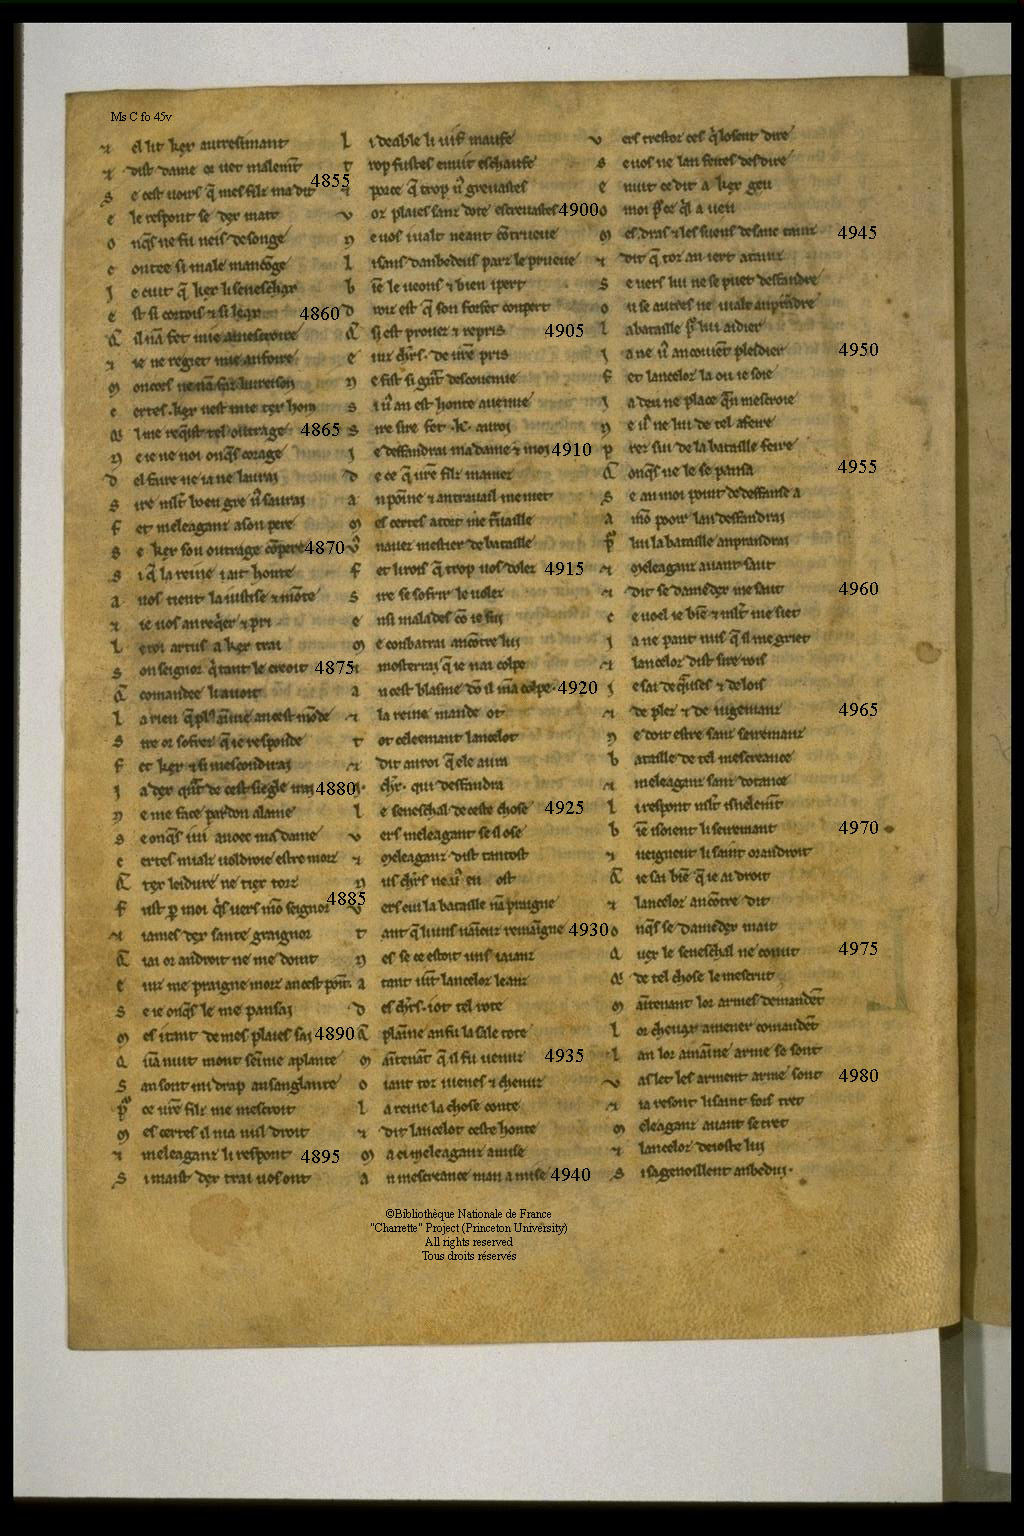 Ms C fo 45v
et el lit ker autresimant
et dist dame or uet malemt̄
se cest uoirs q̄ mes filz ma dit 4855
ele respont se dex mait
onq̄s ne fu neis de songe
contee si male mançonge
Je cuit q̄ kex li seneschax
est si cortois et si leax 4860
Q il nā fet mie a mescroire
et ie ne regiet mie an foire
mon cors ne nā faz liureison
certes kex nest mie tex hom
Qi me req̄ist tel oltrage 4865
ne ie ne noi onq̄s corage
del faire ne ia ne laurai
sire mlt̄ boen gre u9 saurai
fet meleaganz a son pere
se kex son outrage cōpere 4870
si q̄ la reine i ait honte
a uos tient la iustise et mōte
et ie uos an req̄er et pri
le roi artus a kex trai
son seignor q̄ tant le creoit 4875
Q comandee li auoit
la rien q̄ pl9 ainme an cest mōde
sire or sofrez q̄ ie responde
fet kex et si mescondirai
Ja dex qn̄t de cest siegle irai 4880
ne me face pardon a lame
se onq̄s iui auoec ma dame
certes mialz uoldroie estre morz
Q tex leidure ne tiex torz
fust p̱ moi q̄s uers mō seignor 4885
et iames dex sante graignor
Q iai or androit ne me doint
einz me praigne morz an cest poīt
se ie onq̄s le me pansai
mes itant de mes plaies sai 4890
Q anuit mont seīnie a plante
san sont mi drap ansanglante
por ce ure filz me mescroit
mes certes il ni a nul droit
et meleaganz li respont 4895
si maist dex trai uos ont
li deable li uif maufe
trop fustes enuit eschaufe
et porce q̄ trop u9 greuastes
uoz plaies sanz dote escreuastes 4900
ne uos i ualt neant cōtrueue
li sans danbedeus parz le prueue
bīe le ueons et bien i pert
droiz est q̄ son forfet conpert
Q si est prouez et repris 4905
einz chr̄s de ure pris
ne fist si grāt descouenue
si u9 an est honte auenue
sire sire fet .K. au roi
Je deffandrai ma dame et moi 4910
de ce q̄ ure filz mamet
an poīne et an trauail me met
mes certes a tort me trauaille
nauez mestier de bataille
fet li rois q̄ trop uos dolez 4915
sire se sofrir le uolez
ensi malades cō ie sui
me conbatrai ancōtre lui
et mosterrai q̄ ie nai colpe
an cest blasme dō il mā colpe 4920
et la reine mande ot
tot celeemant lancelot
et dit au roi q̄ ele aura
.I. chr̄. qui deffandra
le seneschal de ceste chose 4925
uers meleagant se il ose
et meleaganz dist tantost
nus chr̄s ne u9 en ost
uers cui la bataille nā praigne
tant q̄ li uns uāicuz remaīgne 4930
nes se ce estoit uns iaianz
a tant uīt lancelot leanz
des chr̄s. i ot tel rote
Q plaīne an fu la sale tote
maītenāt q̄ il fu uenuz 4935
oiant toz iuenes et chenuz
la reine la chose conte
et dit lancelot ceste honte
ma ci meleaganz amise
an mescreance man a mise 4940
uers trestoz ces q̄ losent dire
se uos ne lan feites desdire
enuit ce dit a kex geu
o moi por ce q̄l a ueu
mes dras et les suens de sanc tainz 4945
et dit q̄ toz an iert atainz
se uers lui ne se puet deffandre
ou se autres ne uialt anprādre
la bataille por lui aidier
Ja ne u9 an couiēt pleidier 4950
fet lancelot la ou ie soie
Ja deu ne place q̄ an mescroie
ne u9 ne lui de tel afeire
prez sui de la bataille feire
Q onq̄s ne le se pansa 4955
se an moi point de deffanse a
a mō pooir lan deffandrai
por lui la bataille anprandrai
et meleaganz auant saut
et dit se damedex me saut 4960
ce uoel ie bīe et mlt̄ me siet
Ja ne pant nus q̄ il me griet
et lancelot dist sire rois
Je sai de q̄uses et de lois
et de plez et de iugemanz 4965
ne doit estre sanz seiremanz
bataille de tel mescreance
et meleaganz sanz dotance
li respont mlt̄ isnelemt̄
bīe i soient li seiremant 4970
et ueignent li saint orandroit
Q ie sai bīe q̄ ie ai droit
et lancelot ancōtre dit
onq̄s se damedex mait
Quex le seneschal ne conut 4975
Qi de tel chose le mescrut
maītenant lor armes demandēt
lor cheuax amener comandēt
lan lor amāine arme se sont
uaslet les arment arme sont 4980
et ia resont li saint fors tret
meleaganz auant se tret
et lancelot dejoste lui
si sagenoillent anbedui.
©Bibliothèque Nationale de France
"Charrette" Project (Princeton University)
All rights reserved
Tous droits réservés